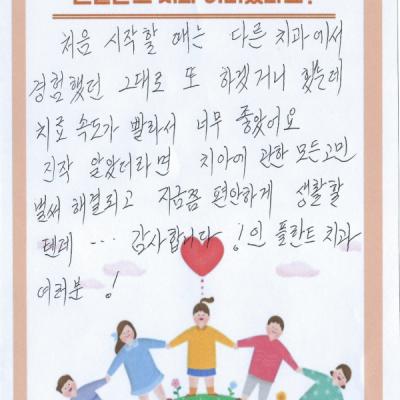 처음 시작할 때는 다른 치과에서
경험했던 그대로 또 하겠거니 했는데
치료 속도가 빨라서 너무 좋았어요
진작 알았더라면 치아에 관한 모든고민
벌써 해결되고 지금쯤 편안하게 생활할
텐데 ··· 감사합니다 ! 인 플란트 치과
여러분 !